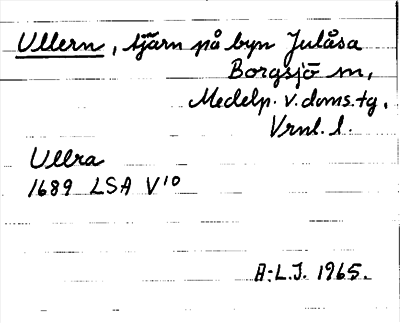 Ullern, tjärn på byn Julåsa
Borgsjö sn,
Medelp. v. doms.tg,
Vrnl. l.
Ullra
1689 LSA V10
A:L.J. 1965.